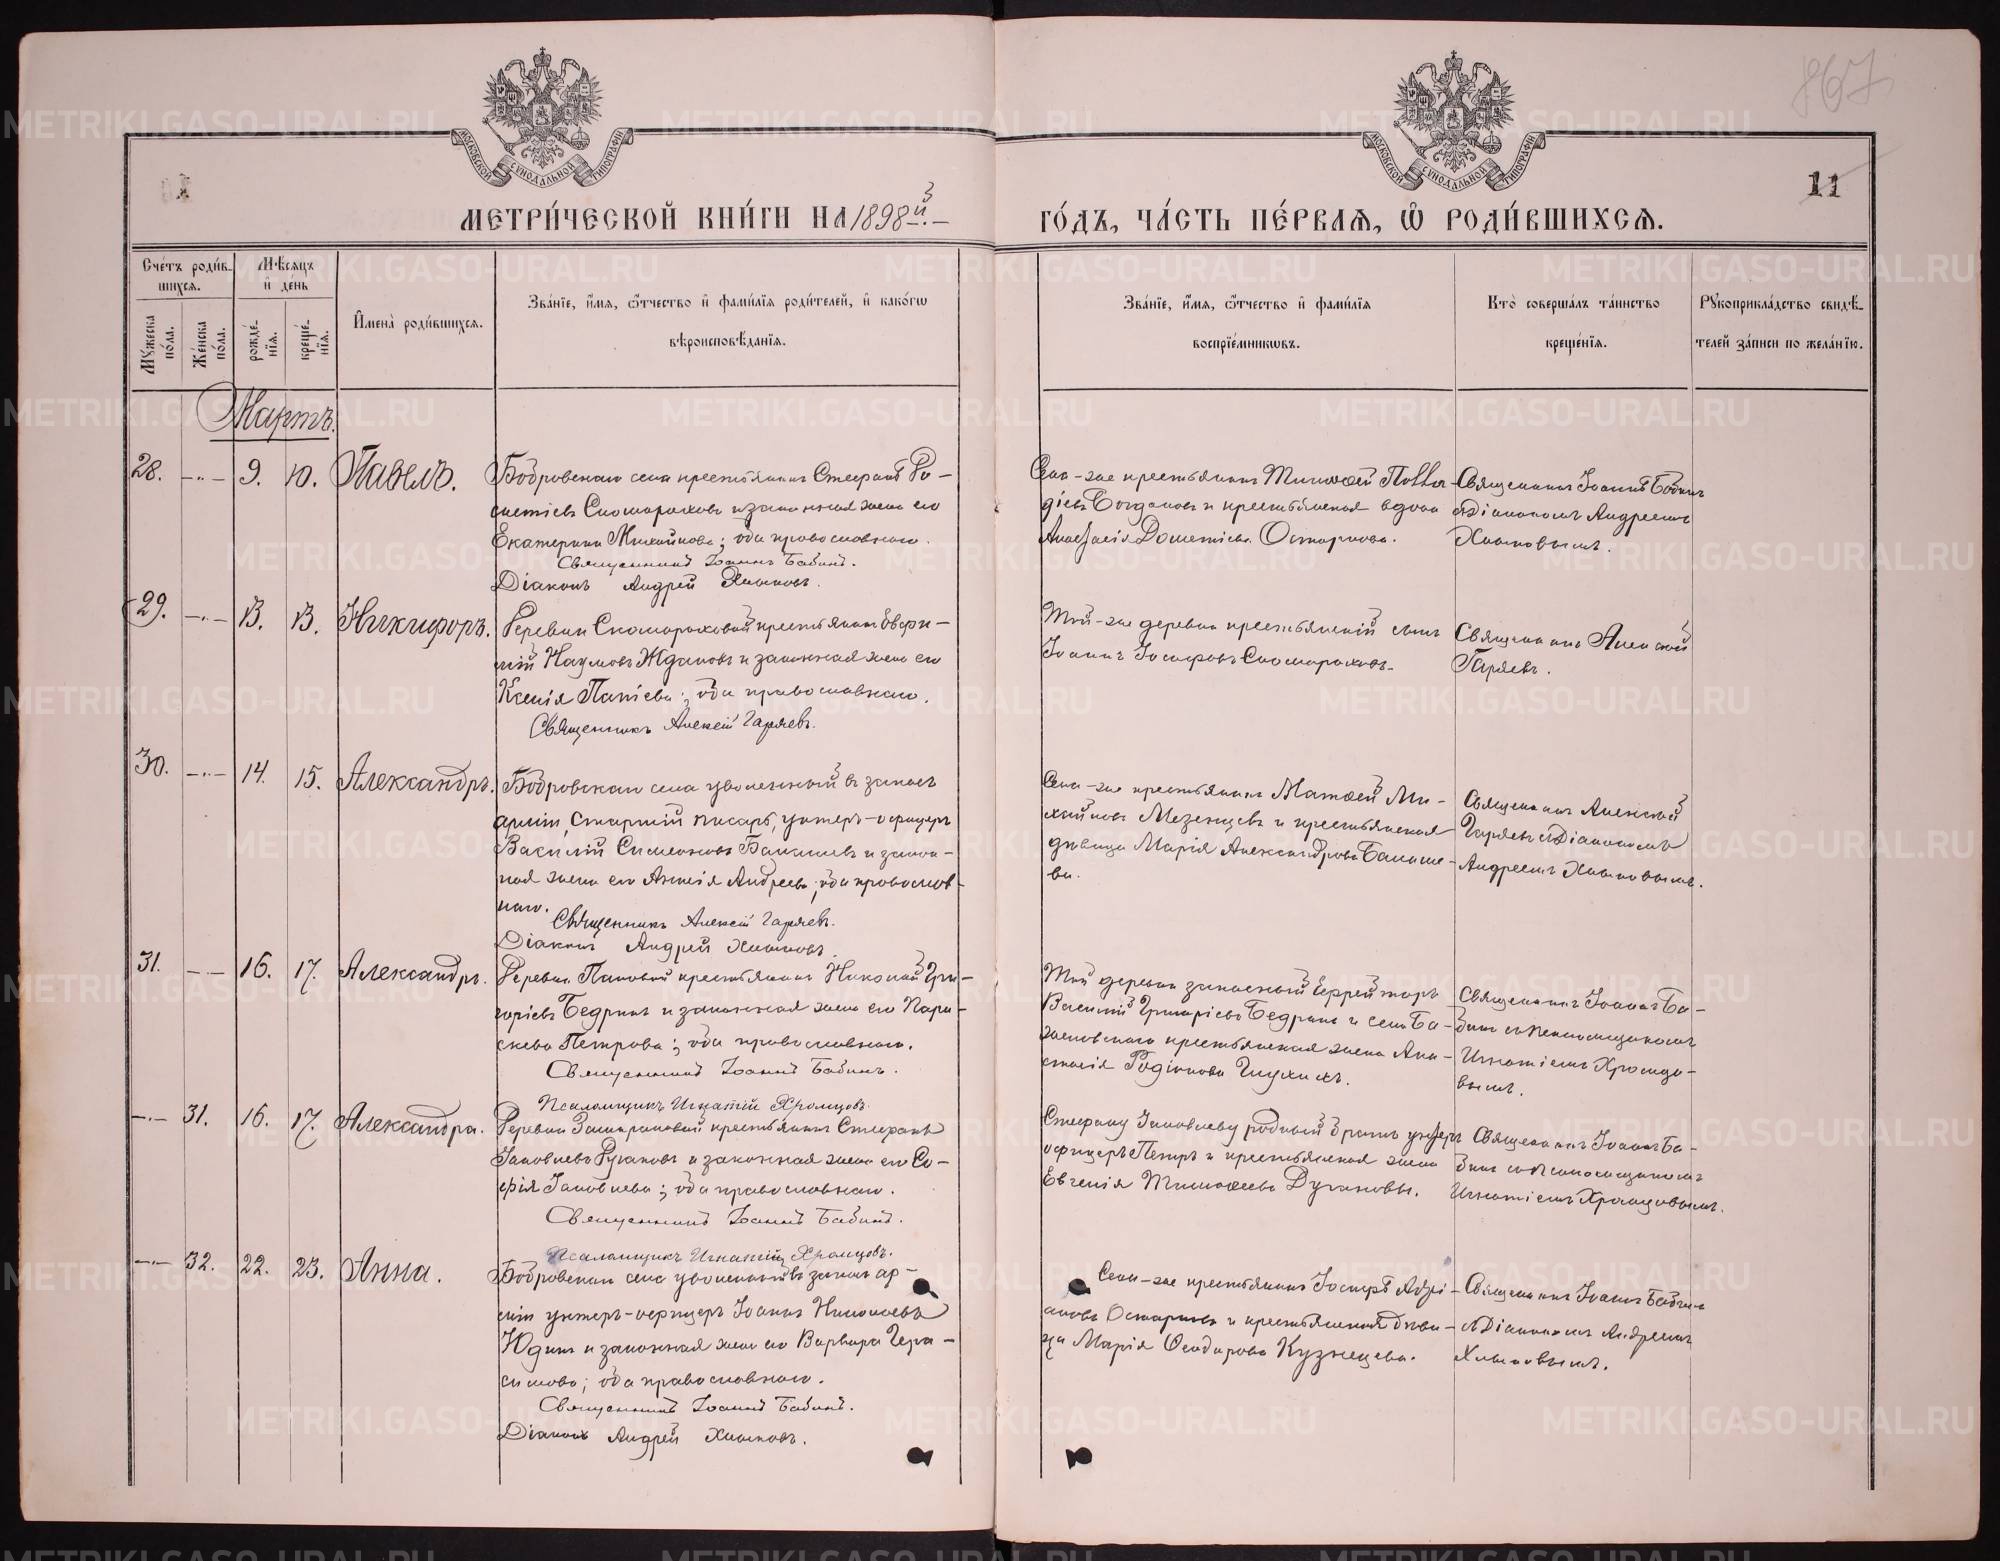 867
11
МОСКОВСКОЙ СУНОДАЛЬНОЙ ТИПОГРАФІИ
МОСКОВСКОЙ СУНОДАЛЬНОЙ ТИПОГРАФІИ
МЕТРИ́ЧЕСКОЙ КНИ́ГИ НА 1898й.
ГО́ДЪ, ЧА́СТЬ ПЕ́РВАѦ, Ѡ҆ РОДИ́ВШИХСѦ.
Сче́тъ роди́в-
шихсѧ.
Мѣ́сѧцъ
и҆ де́нь
Мꙋ́жеска по́ла.
Же́нска по́ла.
рожде́-нїѧ.
креще́-нїѧ.
И҆мена̀ роди́вшихсѧ.
Зва́нїе, и҆́мѧ, ѻ҆́тчество и҆ фами́лїѧ роди́телей, и҆ како́гѡ
вѣроисповѣ́данїѧ.
Зва́нїе, и҆́мѧ, ѻ҆́тчество и҆ фами́лїѧ
воспрїе́мникѡвъ.
Кто̀ соверша́лъ та́инство
креще́нїѧ.
Рꙋкоприкла́дство свидѣ́-
телей за́писи по жела́нїю.
Мартъ.
28. 9. 10. Павелъ.
Бобровскаго села крестьянинъ Стефанъ
Скомороховъ и законная жена его
Екатерина Михайлова; оба православнаго.
Священникъ Іоаннъ Бабинъ.
Діаконъ Андрей Хлыновъ.
Села-же крестьянинъ Тимоѳей
Богдановъ и крестьянская вдова
Анастасія Дометіева Остаркова.
Священникъ Іоаннъ Бабинъ
съ Діакономъ Андреемъ
Хлыновымъ.
29. 13. 13. Никифоръ.
Деревни Скомороховой крестьянинъ
Наумовъ Ждановъ и законная жена его
Ксенія Папіева; оба православнаго.
Священникъ Алексій Гаряевъ.
Той-же деревни крестьянскій сынъ
Іоаннъ Іосифовъ Скомороховъ.
Священникъ Алексій
Гаряевъ.
30. 14. 15. Александръ.
Бобровскаго села уволенный въ запасъ
арміи, старшій писарь, унтеръ-офицеръ
Василій Симеоновъ Балашевъ и закон-
ная жена его Анисія Андреева; оба православ-
наго.
Священникъ Алексій Гаряевъ.
Діаконъ Андрей Хлыновъ.
Села-же крестьянинъ Матѳей Ми-
хайловъ Мезенцевъ и крестьянская
дѣвица Марія Александрова Балаше-
ва.
Священникъ Алексій
Гаряевъ съ Діакономъ
Андреемъ Хлыновымъ.
31. 16. 17. Александръ.
Деревни крестьянинъ Николай Гри-
горіевъ Бедринъ и законная жена его Пара-
скева Петрова; оба православнаго.
Священникъ Іоаннъ Бабинъ.
Псаломщикъ Игнатій Хромцовъ.
Той деревни запасный Ефрейторъ
Василій Григоріевъ Бедринъ и села Ба-
женовскаго крестьянская жена Ана-
стасія Родіонова Глухихъ.
Священникъ Іоаннъ Ба-
бинъ съ псаломщикомъ
Игнатіемъ Хромцо-
вымъ.
31. 16. 17. Александра.
Деревни крестьянинъ Стефанъ
Іаковлевъ и законная жена его Со-
фія Іаковлева; оба православнаго.
Священникъ Іоаннъ Бабинъ.
Псаломщикъ Игнатій Хромцовъ.
Стефану Іаковлеву родный братъ унтеръ
офицеръ Петръ и крестьянская жена
Евгенія Тимоѳеева
Священникъ Іоаннъ Ба-
бинъ съ псаломщикомъ
Игнатіемъ Хромцовымъ.
32. 22. 23. Анна.
Бобровскаго села уволенный въ запасъ ар-
міи унтеръ-офицеръ Іоаннъ Николаевъ
Юдинъ и законная жена его Варвара Гера-
симова; оба православнаго.
Священникъ Іоаннъ Бабинъ.
Діаконъ Андрей Хлыновъ.
Села-же крестьянинъ Іосифъ Адрі-
ановъ Остарковъ и крестьянская дѣви-
ца Марія Ѳеодорова Кузнецова.
Священникъ Іоаннъ Бабинъ
съ Діакономъ Андреемъ
Хлыновымъ.
METRIKI.GASO-URAL.RU